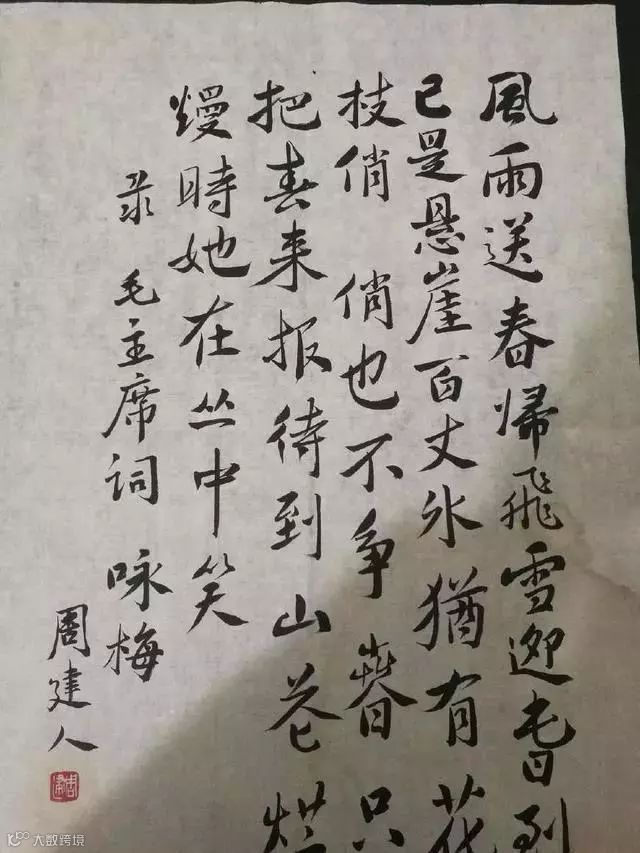 風雨送春帰飛雪迎春到
已是悬崖百丈氷猶有花
枝俏 俏也不争春只
把春来报待到山花烂
熳時她在丛中笑
录毛主席词 咏梅
周建人
大数跨境